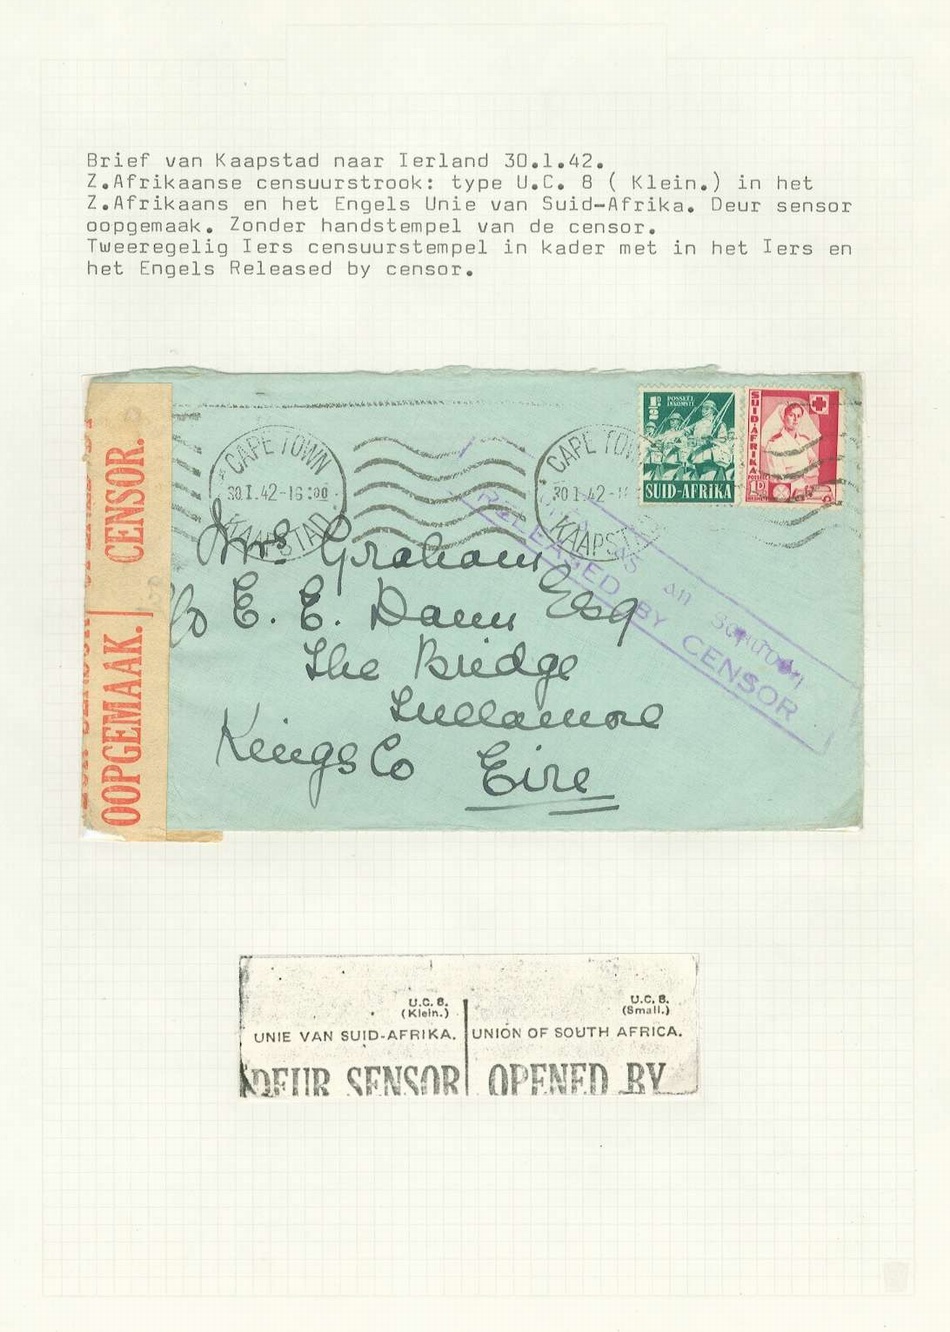 Brief van Kaapstad naar Ierland 30.1.42.
Z.Afrikaanse censuurstrook: type U.C. 8 ( Klein.) in het
Z.Afrikaans en het Engels Unie van Suid-Afrika. Deur sensor
oopgemaak. Zonder handstempel van de censor.
Tweeregelig Iers censuurstempel in kader met in het Iers en
het Engels Released by censor.
OOPGEMAAK. CENSOR.
CAPE TOWN
30 I.42-16:00
KAAPSTAD
CAPE TOWN
30 I.42-1
KAAPST
½D POSSEËL
INKOMSTE
SUID-AFRIKA
SUID-AFRIKA
1D
an
RELEASED BY CENSOR
Mrs Graham
c/o E. E. Dann Esq
The Bridge
Tullamore
Kings Co Eire
U.C. 8.
(Klein.)
UNIE VAN SUID-AFRIKA.
DEUR SENSOR
U.C. 8.
(Small.)
UNION OF SOUTH AFRICA.
OPENED BY